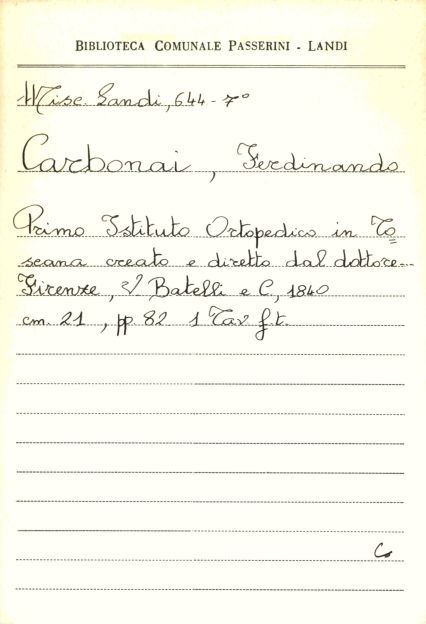 BIBLIOTECA COMUNALE PASSERINI - LANDI
Misc. Landi, 644 - 7º
Carbonai, Ferdinando
Primo Istituto Ortopedico in To=
scana creato e diretto dal dottore...
Firenze, V. Batelli e C., 1840
cm. 21, pp. 82 1 Tav f.t.
Co